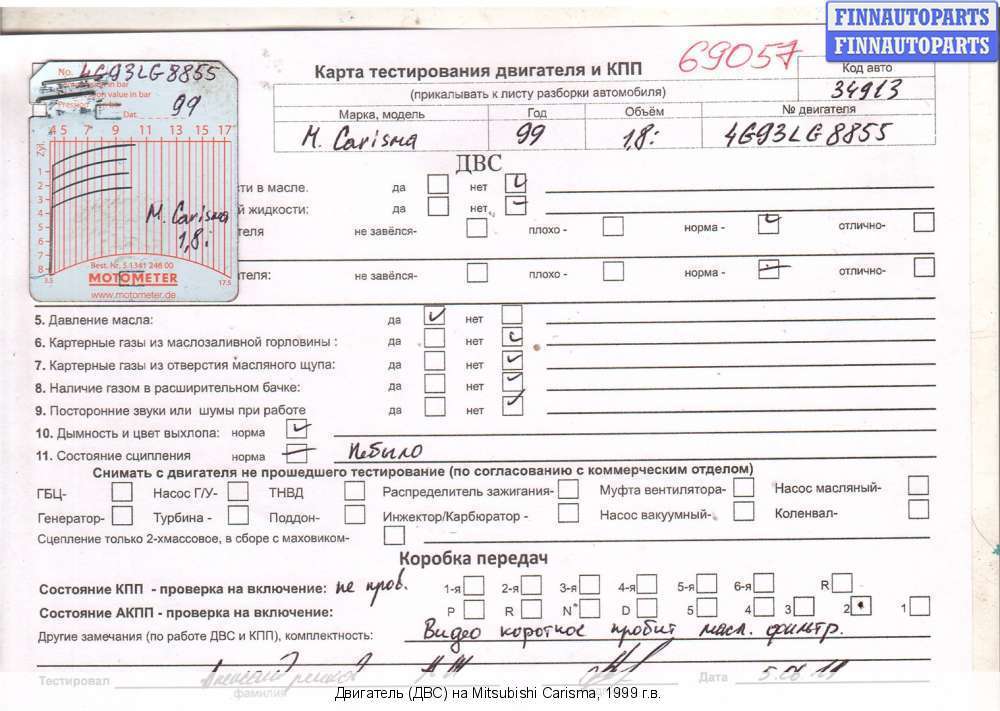 FINNAUTOPARTS
FINNAUTOPARTS
69057
Карта тестирования двигателя и КПП
Код авто
(прикалывать к листу разборки автомобиля)
34913
Марка, модель Год Объём № двигателя
M. Carisma 99 1,8: 4G93LG8855
No. 4G93LG8855
in bar
on value in bar
99
Dat.
4 5 7 9 10 11 13 15 17
Zyl.
1
2
3
4
5
6
7
8
M. Carisma
1,8:
Best. Nr. 5 1341 246 00
3.5 MOTOMETER 17.5
www.motometer.de
ДВС
ти в масле. да нет
й жидкости: да нет
теля не завёлся- плохо - норма - отлично-
теля: не завёлся- плохо - норма - отлично-
5. Давление масла: да нет
6. Картерные газы из маслозаливной горловины : да нет
7. Картерные газы из отверстия масляного щупа: да нет
8. Наличие газом в расширительном бачке: да нет
9. Посторонние звуки или шумы при работе да нет
10. Дымность и цвет выхлопа: норма
11. Состояние сцепления норма небыло
Снимать с двигателя не прошедшего тестирование (по согласованию с коммерческим отделом)
ГБЦ- Насос Г/У- ТНВД Распределитель зажигания- Муфта вентилятора- Насос масляный-
Генератор- Турбина - Поддон- Инжектор/Карбюратор - Насос вакуумный- Коленвал-
Сцепление только 2-хмассовое, в сборе с маховиком-
Коробка передач
Состояние КПП - проверка на включение: не пров. 1-я 2-я 3-я 4-я 5-я 6-я R
Состояние АКПП - проверка на включение: P R N D 5 4 3 2 1
Другие замечания (по работе ДВС и КПП), комплектность: Видео короткое пробит масл. фильтр.
Тестировал Дата
фамилия
Двигатель (ДВС) на Mitsubishi Carisma, 1999 г.в.